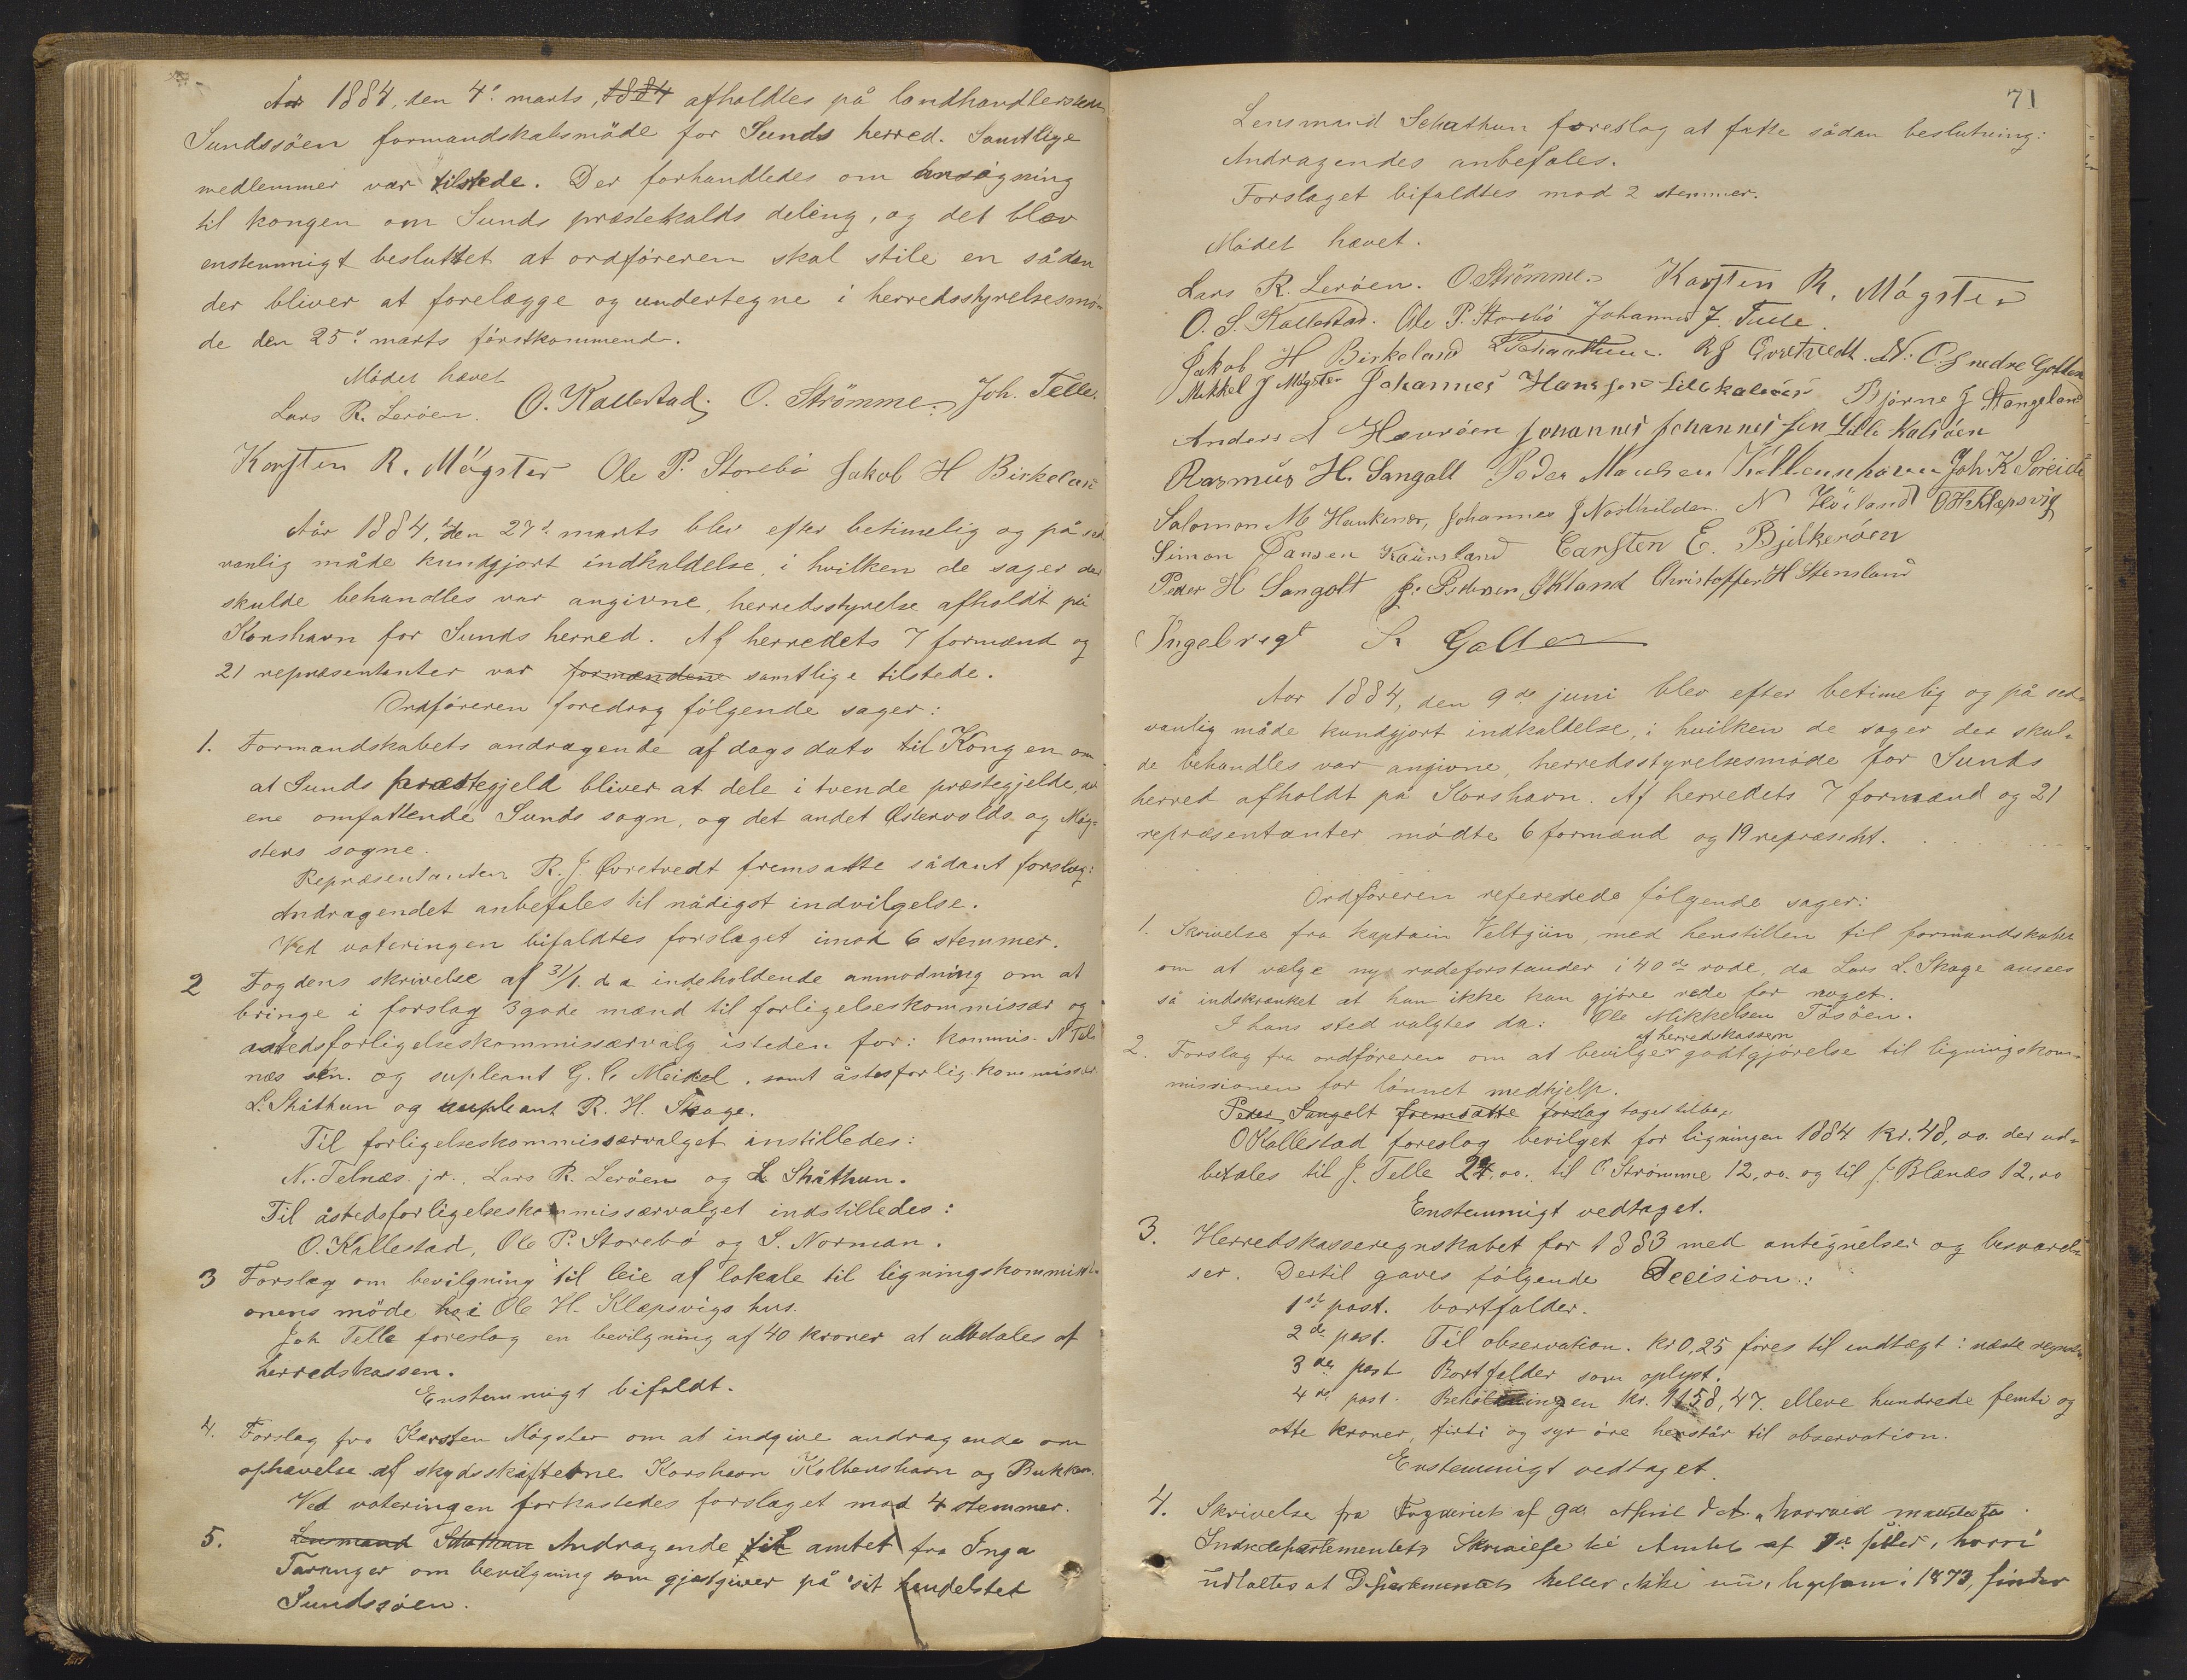 År 1884, den 4de marts, 1884 afholdtes på landhandlerstedet
Sundssöen formandskabsmöde for Sunds herred. Samtlige
medlemmer var tilstede. Der forhandledes om ansögning
til kongen om Sunds præstekalds deling, og det blev
enstemmigt besluttet at ordföreren skal stile en sådan
der bliver at forelægge og undertegne i herredsstyrelsesmö-
de den 25de marts förstkommende.
Mödet hævet
Lars R. Leröen. O. Kallestad. O. Strömme. Joh. Telle.
Karsten R. Mögster Ole P. Storebö Jakob H Birkeland
År 1884, den 27de marts blev efter betimelig og på sed
vanlig måde kundgjort indkaldelse, i hvilken de sager der
skulde behandles var angivne, herredsstyrelse afholdt på
Korshavn for Sunds herred. Af herredets 7 formænd og
21 repræsentanter var formændene samtlige tilstede.
Ordföreren foredrog fölgende sager:
1. Formandskabets andragende af dags dato til Kongen om
at Sunds præstegjeld bliver at dele i tvende præstegjelde, det
ene omfattende Sunds sogn, og det andet Østervolds og Mög-
sters sogne.
Repræsentanten R. J. Øvretvedt fremsatte sådant forslag:
Andragendet anbefales til nådigst indvilgelse.
Ved voteringen bifaldtes forslaget imod 6 stemmer.
2 Fogdens skrivelse af 31/1. d. a. indeholdende anmodning om at
bringe i forslag 3 gode mænd til forligelseskommissær og
åstedsforligelseskommissærvalg isteden for: kommis. N Tel-
næs sen. og supleant G. C. Meidel, samt åstesforlig. kommissær
L. Skåthun og supleant R. H. Skage.
Til forligelseskommissærvalget instilledes:
N. Telnæs jr., Lars R. Leröen og L Skåthun.
Til åstedsforligelseskommissærvalget indstilledes:
O. Kallestad, Ole P. Storebö og S. Norman.
3 Forslag om bevilgning til leie af lokale til ligningskommissi-
onens möde hos i Ole H. Klæpsvigs hus.
Joh Telle foreslog en bevilgning af 40 kroner at udbetales af
herredskassen.
Enstemmigt bifaldt.
4. Forslag fra Karsten Mögster om at indgive andragende om
ophævelse af skydsskifterne Korshavn Kolbenshavn og Bukken.
Ved voteringen forkastedes forslaget mod 4 stemmer.
5. Lensmand Skathun Andragende til amtet fra Inga
Taranger om bevilgning som gjestgiver på sit handelsted
Sundssöen.
71
Lensmand Schathun foreslog at fatte sådan beslutning:
Andragendes anbefales.
Forslaget bifaldtes mod 2 stemmer.
Mödet hævet.
Lars R. Leröen. O Strömme. Karsten R. Mögster
O. S. Kallestad. Ole P. Storebö Johannes J. Telle.
Jakob H Birkeland L Schaathun. R J Øvretvedt. N. O. J nedre Golten
Mikkel J Mögster Johannes Hansen Lillekalsöen Bjørne J Stangeland
Anders A Havröen Johannes Johannes sen Lille Kalsöen
Rasmus H. Sangolt Peder Monsen Kolbenshavn Joh. K Söreide
Salomon M Haukenæs, Johannes J Nordhilden. N Höiland O H Klæpsvig
Simon Hansen Kaursland Carsten E. Bjelkeröen
Peder H Sangolt J. Pedersen Økland Christoffer H Stensland
Ingebrigt S Golten
Aar 1884, den 9de juni blev efter betimelig og på sed-
vanlig måde kundgjort indkaldelse, i hvilken de sager der skul-
de behandles var angivne, herredsstyrelsesmöde for Sunds
herred afholdt på Korshavn. Af herredets 7 formænd og 21
repræsentanter mödte 6 formænd og 19 repræsent.
Ordföreren refererede fölgende sager:
1. Skrivelse fra kaptain Veltzün, med henstillen til formandskabet
om at vælge ny rodeforstander i 40de rode, da Lars L. Skage ansees
så indskrænket at han ikke kan gjöre rede for noget.
I hans sted valgtes da: Ole Mikkelsen Tösöen.
af herredskassen
2. Forslag fra ordföreren om at bevilge godtgjörelse til ligningskom-
missionen for lönnet medhjelp.
Peder Sangolt fremsatte forslag taget tilbage
O Kallestad foreslog bevilget for ligningen 1884 kr. 48,00. der ud-
betales til J. Telle 24,00. til O. Strömme 12,00. og til J. Blænæs 12,00
Enstemmigt vedtaget.
3. Herredskasseregnskabet for 1883 med antegnelser og besvarel-
ser. Dertil gaves fölgende Decision:
1ste post. bortfalder.
2de post. Til observation. kr 0,25 föres til indtægt i næste regnsk.
3die post Bortfalder som oplyst.
4de post. Beholdningen kr. 1158,47. elleve hundrede femti og
otte kroner, firti og syv öre henstår til observation.
Enstemmigt vedtaget.
4. Skrivelse fra Fogderiet af 9de April d. A. hvorved meddeltes
Indredepartementets Skrivelse til Amtet af 1ste f�ller, hvori
udtaltes at Departementet heller ikke nu, ligesom i 1873, finder